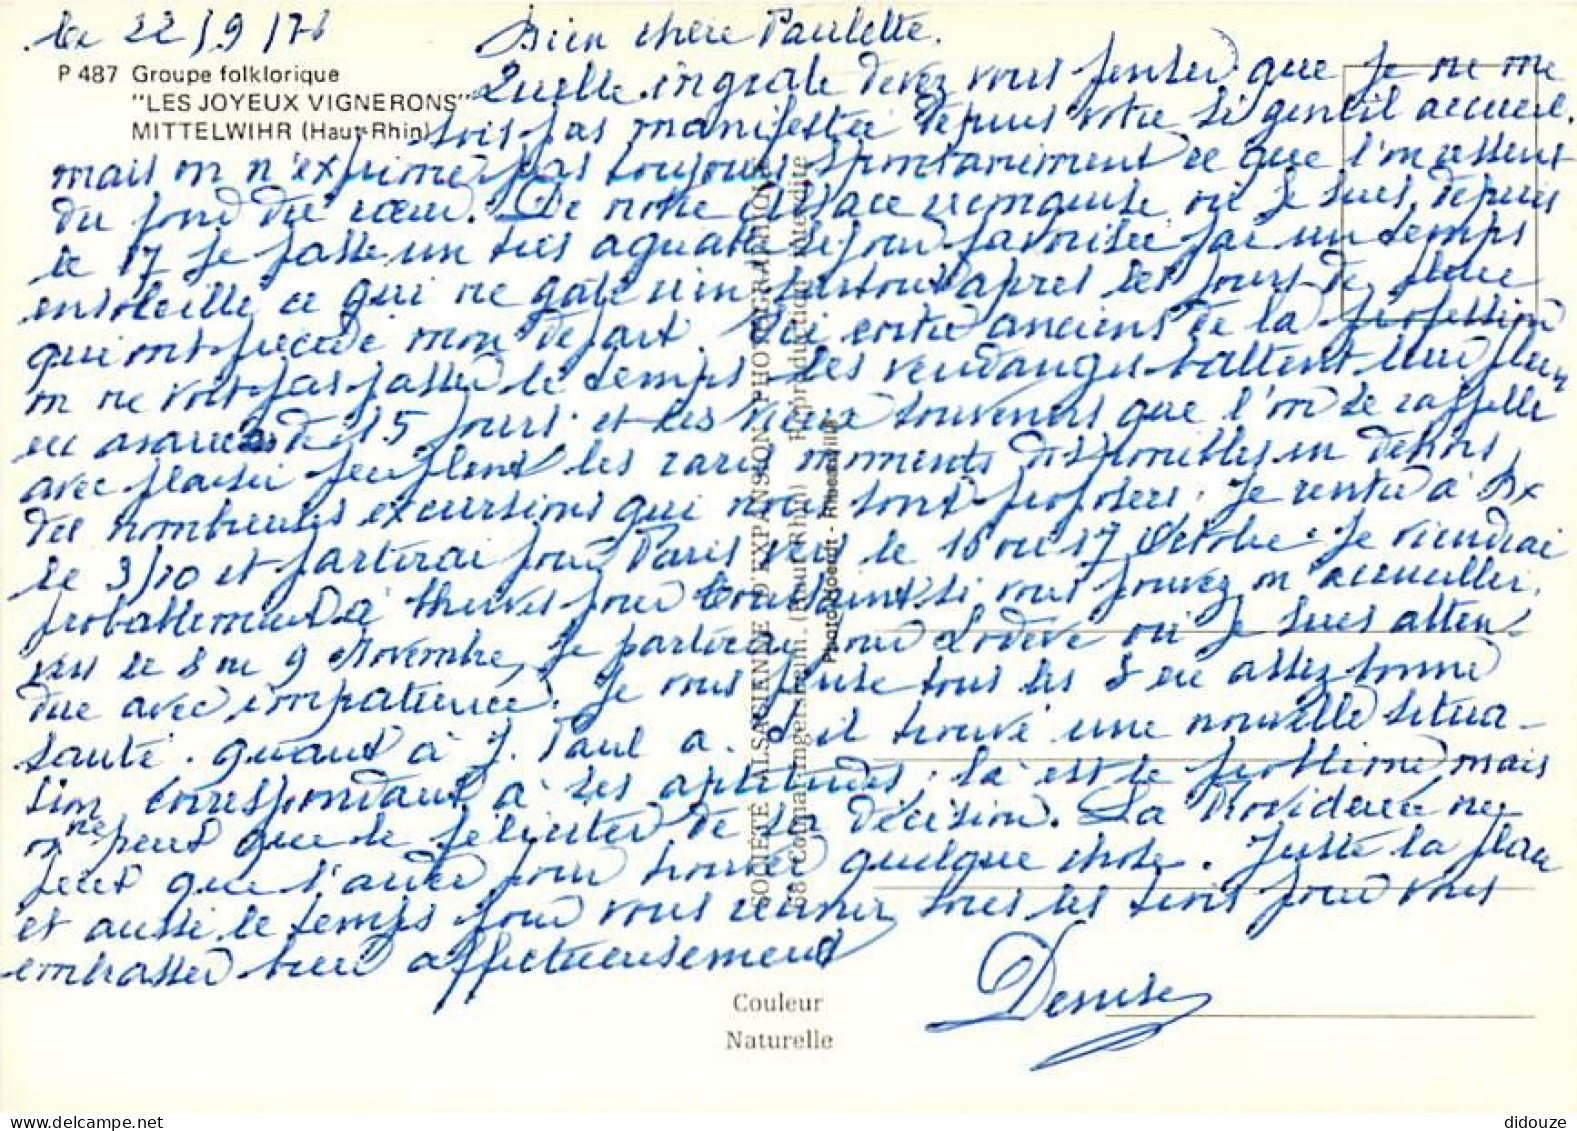 le 22/9/76
Bien chère Paulette.
P 487 Groupe folklorique
"LES JOYEUX VIGNERONS"
MITTELWIHR (Haut-Rhin)
Quelle ingrate devez vous penser que je ne me
sois pas manifestée depuis votre si gentil accueil.
mais on n'exprime pas toujours spontanément ce que l'on ressent
du fond du cœur. De notre Alsace où je suis depuis
le 17 je passe un très agréable séjour favorisée par un temps
ensoleillé ce qui ne gâte rien surtout après les jours de pluie
qui ont précédé mon départ. Ici entre anciens de la profession
on ne voit pas passer le temps. Les vendanges battent leur plein
en avance de 15 jours et les vieux souvenirs que l'on se rappelle
avec plaisir peuplent les rares moments disponibles en dehors
des nombreuses excursions qui nous sont proposées. Je rentre à Bx
le 3/10 et partirai pour Paris vers le 16 ou 17 Octobre. Je viendrai
probablement à pour Toussaint si vous pouvez m'accueillir.
vers le 8 ou 9 Novembre, je partirai pour Lodève où je suis atten-
due avec impatience. Je vous pense tous les 3 en assez bonne
santé. quant à J. Paul a-t-il trouvé une nouvelle situa-
tion correspondant à ses aptitudes, là est le problème, mais
on ne peut que le féliciter de sa décision. La Providence ne
peut que l'aider pour trouver quelque chose. Juste la place
et aussi le temps pour vous réunir tous les trois pour vous
embrasser bien affectueusement
Denise
SOCIÉTÉ ALSACIENNE D'EXPANSION PHOTOGRAPHIQUE
68 Colmar-Ingersheim (Haut-Rhin) Reproduction interdite
Couleur
Naturelle
didouze